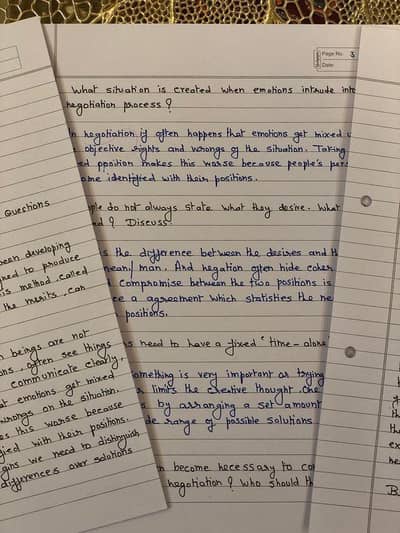 Page No. 3
Date
What situation is created when emotions intrude into
negotiation process?
In negotiation it often happens that emotions get mixed
objective rights and wrongs of the situation. Taking
position makes this worse because people's
identified with their positions.
do not always state what they desire. What
? Discuss
the difference between the desires and
mean/man. And negation often hide
compromise between the two positions is
a agreement which statisties the
positions.
need to have a fixed 'time-alone
something is very important as trying
limits the creative thought. One
by arranging a set amount
range of possible solutions
become necessary to
negotiation? Who should
Questions
been developing
to produce
is method called
the merits. Can
beings are not
often see things
communicate clearly.
emotions get mixed
wrongs on the situation.
this worse because
with their positions.
we need to distinguish
differences over solutions